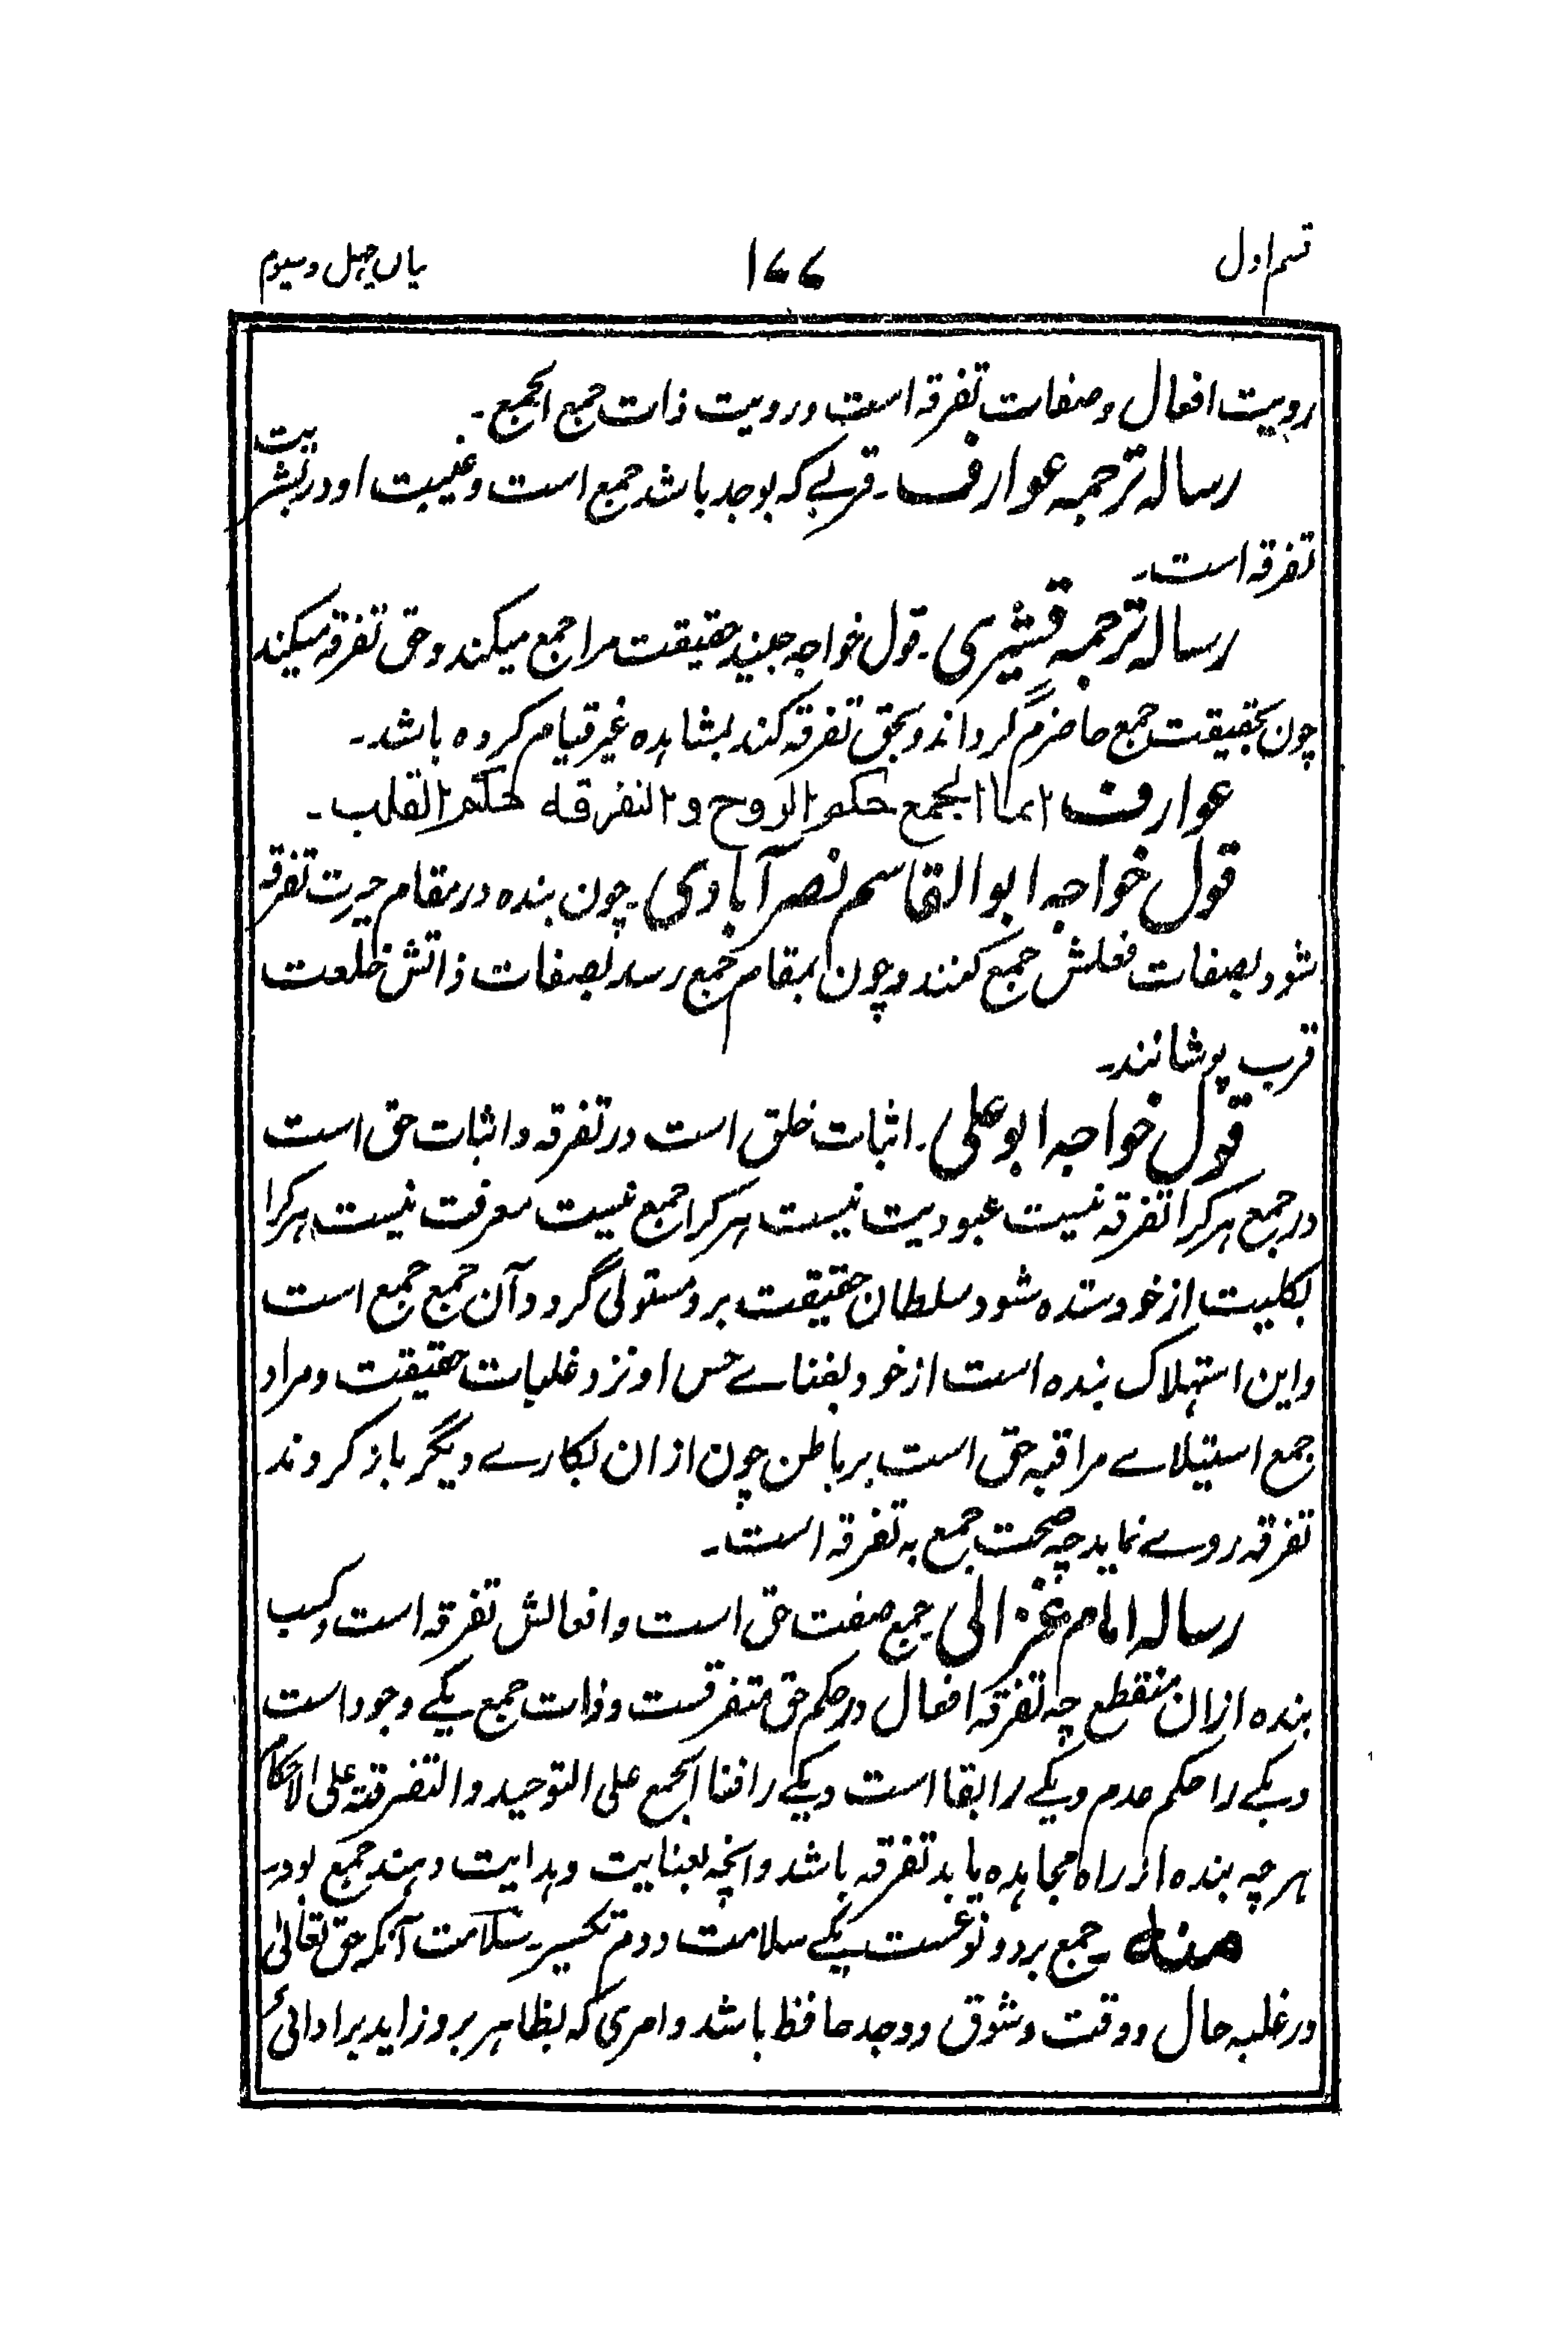 قسم اول
۱۷۷
بیان چهل و سیوم
رویت افعال وصفات تفرقه است و رویت ذات جمع الجمع۔
رساله ترجمه عوارف۔ قربے که بوجد باشد جمع است و غیبت او در بشریت
تفرقه است۔
رساله ترجمه قشیری۔ قول خواجه جنید حقیقت مرا جمع میکند و حق تفرقه میکند
چون بحقیقت جمع حاضرم گرداند و بحق تفرقه کند بمشاهده غیر قیام کرده باشد۔
عوارف انما الجمع حکم الروح و التفرقه حکم القلب۔
قول خواجه ابو القاسم نصرآبادی۔ چون بنده در مقام حیرت تفرقه
شود بصفات فعلش جمع کنند و چون بمقام جمع رسد بصفات ذاتش خلعت
قرب پوشانند۔
قول خواجه ابو علی۔ اثبات خلق است در تفرقه و اثبات حق است
در جمع هر کرا تفرقه نیست عبودیت نیست هر کرا جمع نیست معرفت نیست هر کرا
بکلیت از خود ستده شود سلطان حقیقت برو مستولی گردد آن جمع جمع است
و این استهلاک بنده است از خود بفناے حس او نزد غلبات حقیقت و مراد
جمع استیلاے مراقبه حق است بر باطن چون ازان بکارے دیگر باز گردند
تفرقه روے نماید چه صحت جمع به تفرقه است۔
رساله امام غزالی جمع صفت حق است و افعالش تفرقه است و کسب
بنده ازان منقطع چه تفرقه افعال در حکم حق متفرقست و ذات جمع یکے وجود است
و یکے را حکم عدم و یکے را بقا است و یکے را فنا الجمع علی التوحید و التفرقة علی الاحکام
هر چه بنده از راه مجاهده یابد تفرقه باشد و انچه بعنایت و هدایت دهند جمع بود۔
منه۔ جمع بر دو نوعست یکے سلامت دوم تکسیر۔ سلامت آنکه حق تعالی
در غلبه حال و وقت و شوق و وجد حافظ باشد و امری که بظاهر برو زاید بر ادائی